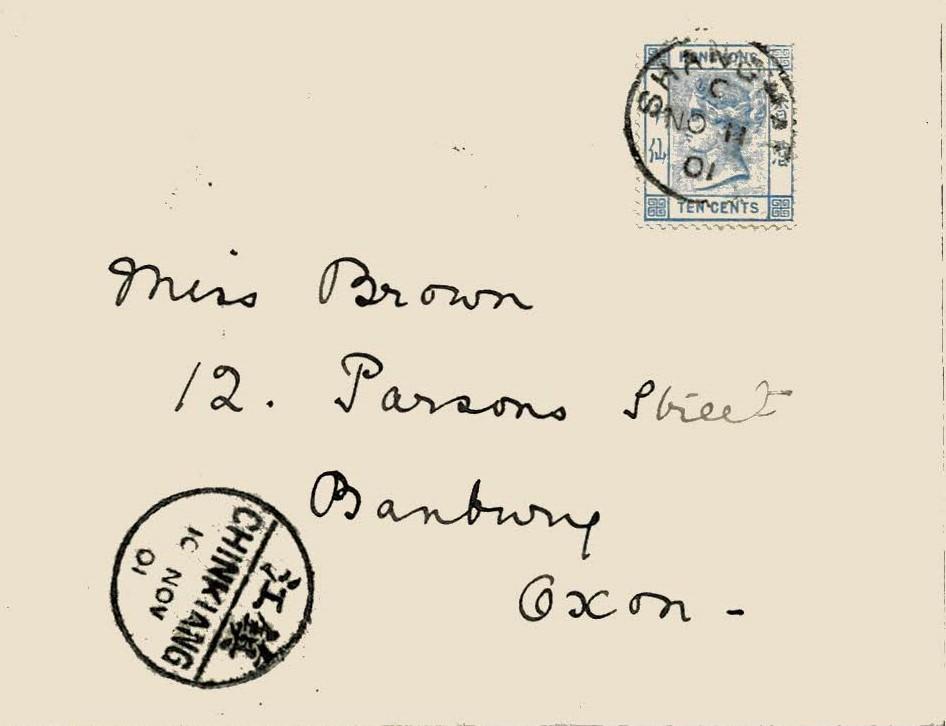 HONG KONG
仙
TEN CENTS
SHANGHAI
C
NO 11
01
Miss Brown
12. Parsons Street
Banbury
Oxon -
CHINKIANG
10 NOV
01
鎮江